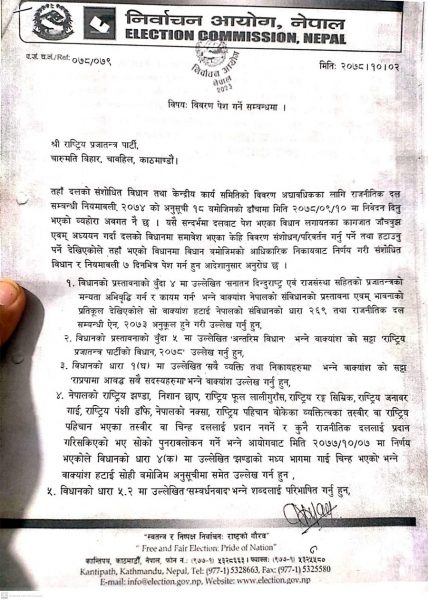 निर्वाचन आयोग, नेपाल
ELECTION COMMISSION, NEPAL
निर्वाचन आयोग
नेपाल
2023
प.सं. च.नं./Ref: ०७८/०७९
मितिः २०७८।१०।०२
विषयः विवरण पेश गर्ने सम्बन्धमा ।
श्री राष्ट्रिय प्रजातन्त्र पार्टी,
चारुमति विहार, चावहिल, काठमाण्डौं।
तहाँ दलको संशोधित विधान तथा केन्द्रीय कार्य समितिको विवरण अद्यावधिकका लागि राजनीतिक दल
सम्बन्धी नियमावली, २०७४ को अनुसूची १८ बमोजिमको ढाँचामा मिति २०७८/०९/१० मा निवेदन दिनु
भएको व्यहोरा अवगत नै छ । यसै सन्दर्भमा दलवाट पेश भएका विधान लगायतका कागजात जाँचवुझ
एवम् अध्ययन गर्दा दलको विधानमा समावेश भएका केहि विवरण संशोधन/परिवर्तन गर्नु पर्ने तथा हटाउनु
पर्ने देखिएकोले तहाँ भएको विधान बमोजिमको आधिकारिक निकायवाट निर्णय गरी संशोधित
विधान र नियमावली ७ दिनभित्र पेश गर्न हुन आदेशानुसार अनुरोध छ ।
१. विधानको प्रस्तावनाको वुँदा ४ मा उल्लेखित 'सनातन हिन्दुराष्ट्र एवं राजसंस्था सहितको प्रजातन्त्रको
मन्यता अभिवृद्धि गर्न र कायम गर्न' भन्ने वाक्यांश नेपालको संविधानको प्रस्तावना एवम् भावनाको
प्रतिकूल देखिएकोले सो वाक्यांश हटाई नेपालको संविधानको धारा २६९ तथा राजनीतिक दल
सम्बन्धी ऐन, २०७३ अनुकूल हुने गरी उल्लेख गर्नु हुन,
२. विधानको प्रस्तावनाको वुँदा ५ मा उल्लेखित 'अन्तरिम विधान' भन्ने वाक्यांश को सट्टा 'राष्ट्रिय
प्रजातन्त्र पार्टीको विधान, २०७८' उल्लेख गर्नु हुन,
३. विधानको धारा १(घ) मा उल्लेखित 'सवै व्यक्ति तथा निकायहरुमा' भन्ने वाक्यांश को सट्टा
'राप्रपामा आवद्ध सवै सदस्यहरुमा' भन्ने वाक्यांश उल्लेख गर्नु हुन,
४. नेपालको राष्ट्रिय झण्डा, निशान छाप, राष्ट्रिय फूल लालीगुराँस, राष्ट्रिय रङ्ग सिम्रिक, राष्ट्रिय जनावर
गाई, राष्ट्रिय पंक्षी डाँफे, नेपालको नक्सा, राष्ट्रिय पहिचान वोकेका व्यक्तित्वका तस्वीर वा राष्ट्रिय
पहिचान भएका तस्वीर वा चिन्ह दललाई प्रदान नगर्ने र कुनै राजनीतिक दललाई प्रदान
गरिसकिएको भए सोको पुनरावलोकन गर्ने भन्ने आयोगबाट मिति २०७७/१०/०७ मा निर्णय
भएकोले विधानको धारा ४(क) मा उल्लेख 'झण्डाको मध्य भागमा गाई चिन्ह भएको' भन्ने
वाक्यांश हटाई सोही वमोजिम अनुसूचीमा समेत उल्लेख गर्न हुन ,
५. विधानको धारा ५.२ मा उल्लेखित 'सम्वर्धनवाद' भन्ने शब्दलाई परिभाषित गर्नु हुन,
"स्वतन्त्र र निष्पक्ष निर्वाचनः राष्ट्रको गौरव"
"Free and Fair Election: Pride of Nation"
कान्तिपथ, काठमाण्डौं, नेपाल, फोन नं. (९७७-१) ५३२८६६३, फ्याक्सः (९७७-१) ५३२५५८०
Kantipath, Kathmandu, Nepal, Tel: (977-1) 5328663, Fax: (977-1) 5325580
E-mail: info@election.gov.np, Website: www.election.gov.np